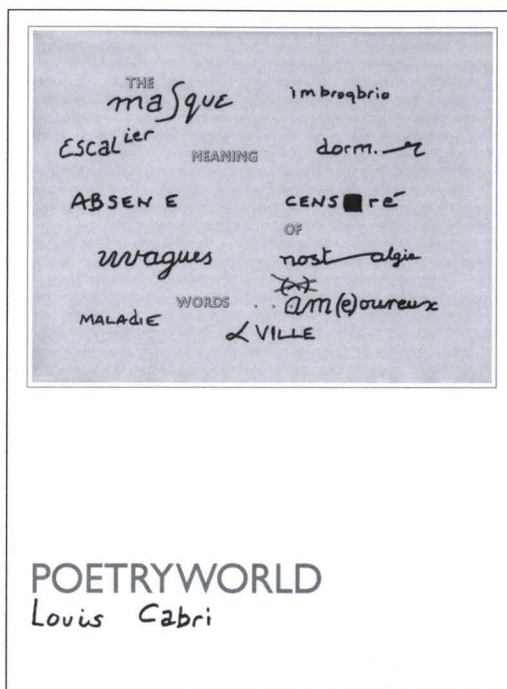 THE
maſque imbroqbrio
Escalier
MEANING dorm.
ABSEN E CENS■ré
OF
vvvagues nost algie
(x)
WORDS am(e)oureux
MALADIE
VILLE
POETRYWORLD
Louis Cabri